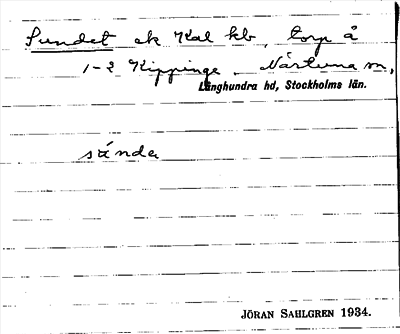 Sundet ek Kal kb, torp å
1-2 Kippinge, Närtuna sn,
Långhundra hd, Stockholms län.
súnda
JÖRAN SAHLGREN 1934.